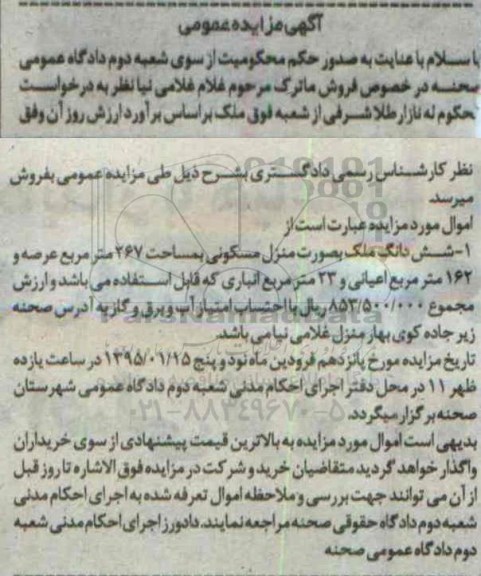 آگهی مزایده عمومی
با سلام با عنایت به صدور حکم محکومیت از سوی شعبه دوم دادگاه عمومی
صحنه در خصوص فروش ماترک مرحوم غلام غلامی نیا نظر به درخواست
محکوم له نازار طلا شرفی از شعبه فوق ملک بر اساس برآورد ارزش روز آن وفق
نظر کارشناس رسمی دادگستری بشرح ذیل طی مزایده عمومی بفروش
میرسد.
اموال مورد مزایده عبارت است از
۱-شش دانگ ملک بصورت منزل مسکونی بمساحت ۲۶۷ متر مربع عرصه و
۱۶۲ متر مربع اعیانی و ۲۳ متر مربع انباری که قابل استفاده می باشد و ارزش
مجموع ۸۵۳/۵۰۰/۰۰۰ ریال با احتساب امتیاز آب و برق و گاز به آدرس صحنه
زیر جاده کوی بهار منزل غلامی نیا می باشد.
تاریخ مزایده مورخ پانزدهم فرودین ماه نود و پنج ۱۳۹۵/۰۱/۱۵ در ساعت یازده
ظهر ۱۱ در محل دفتر اجرای احکام مدنی شعبه دوم دادگاه عمومی شهرستان
صحنه برگزار میگردد.
بدیهی است اموال مورد مزایده به بالاترین قیمت پیشنهادی از سوی خریداران
واگذار خواهد گردید متقاضیان خرید و شرکت در مزایده فوق الاشاره تا روز قبل
از آن می توانند جهت بررسی و ملاحظه اموال تعرفه شده به اجرای احکام مدنی
شعبه دوم دادگاه حقوقی صحنه مراجعه نمایند. دادورز اجرای احکام مدنی شعبه
دوم دادگاه عمومی صحنه
ParsNamadData
۰۲۱-۸۸۳۴۹۶۷۰-۵